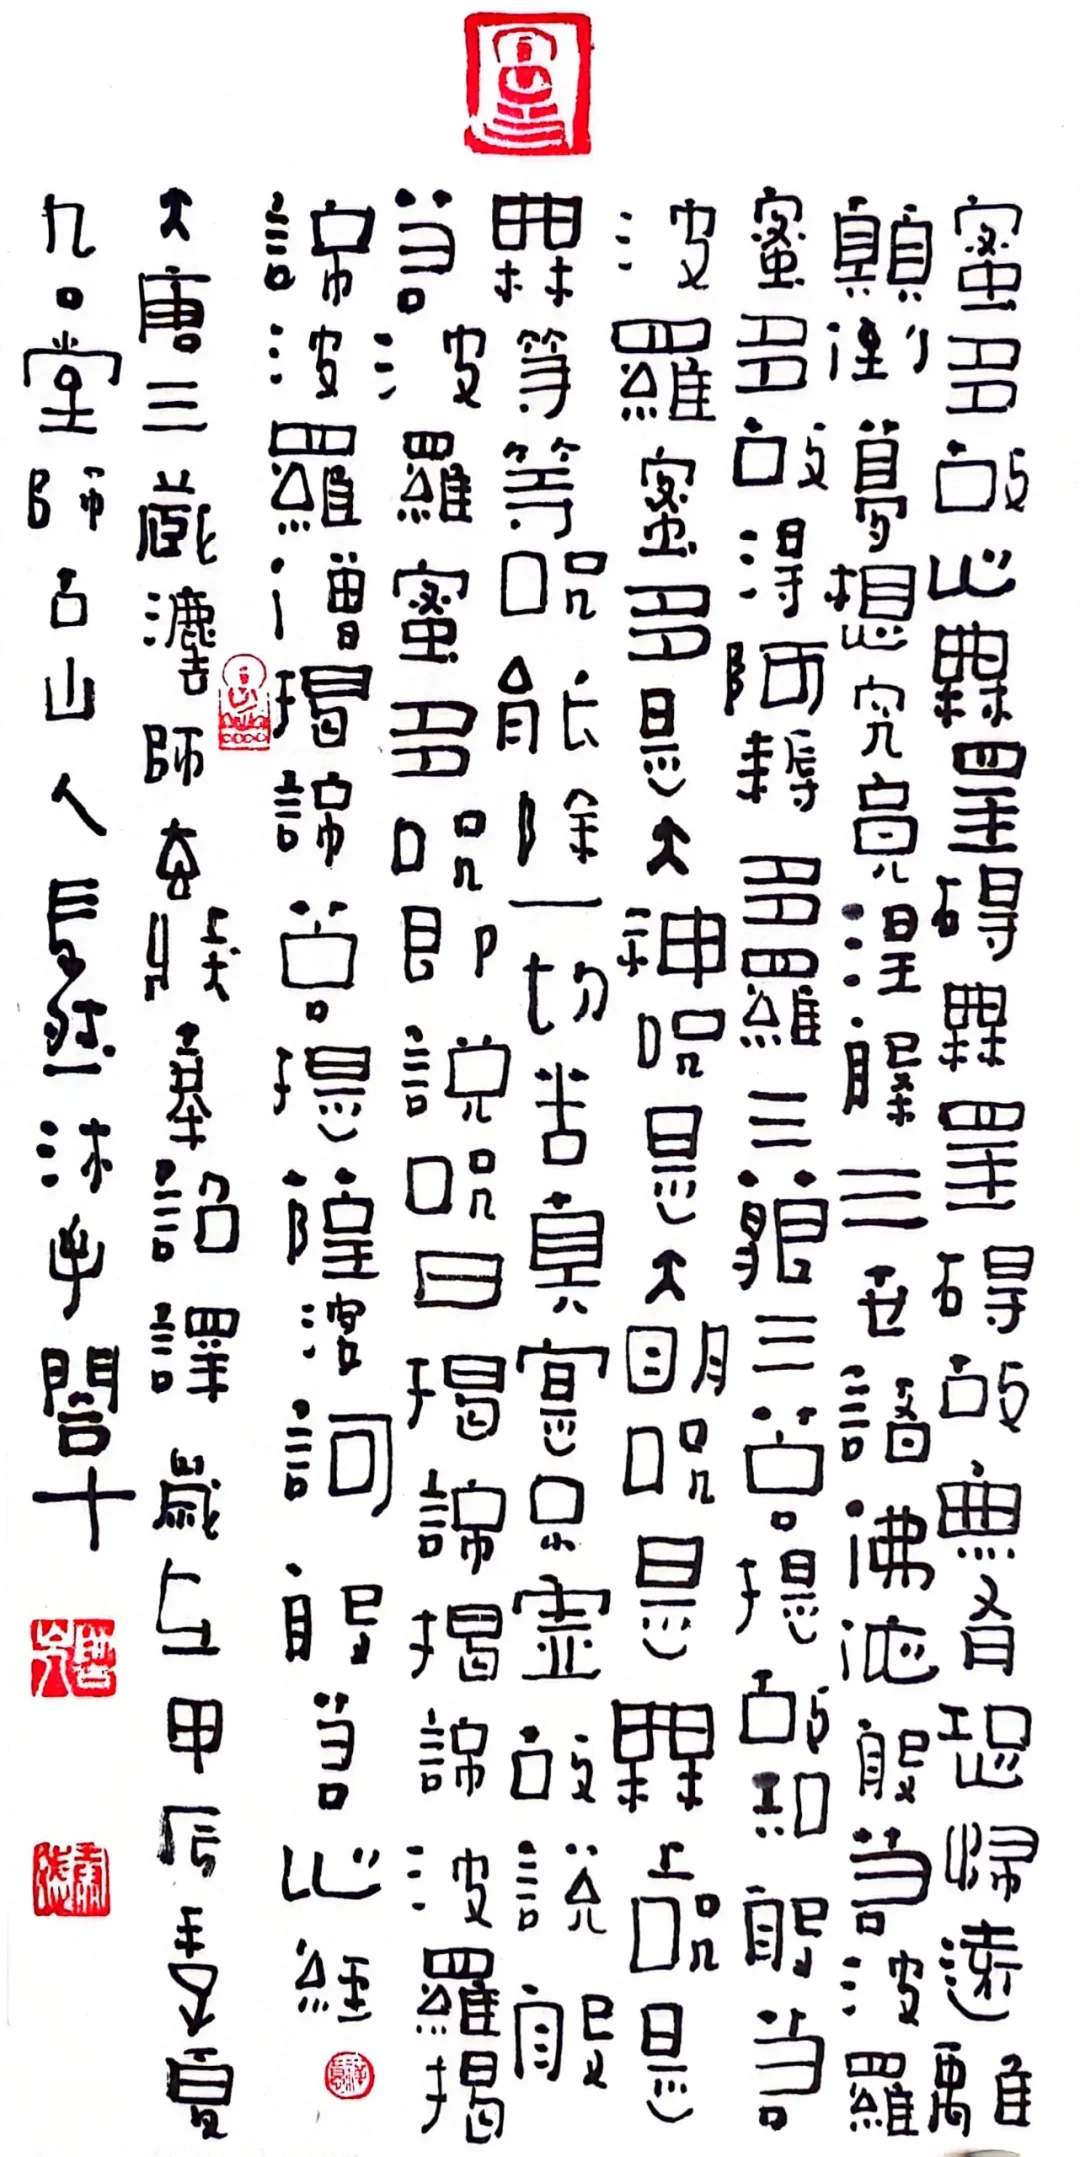 蜜多故心無罣礙無罣礙故無有恐怖遠離
顛倒夢想究竟涅槃三世諸佛依般若波羅
蜜多故得阿耨多羅三藐三菩提故知般若
波羅蜜多是大神咒是大明咒是無上咒是
無等等咒能除一切苦真實不虛故說般
若波羅蜜多咒即說咒曰揭諦揭諦波羅揭
諦波羅僧揭諦菩提薩婆訶般若心經
大唐三藏灋師玄奘奉詔譯歲在甲辰季夏
堂師古山人長然沐手閤十